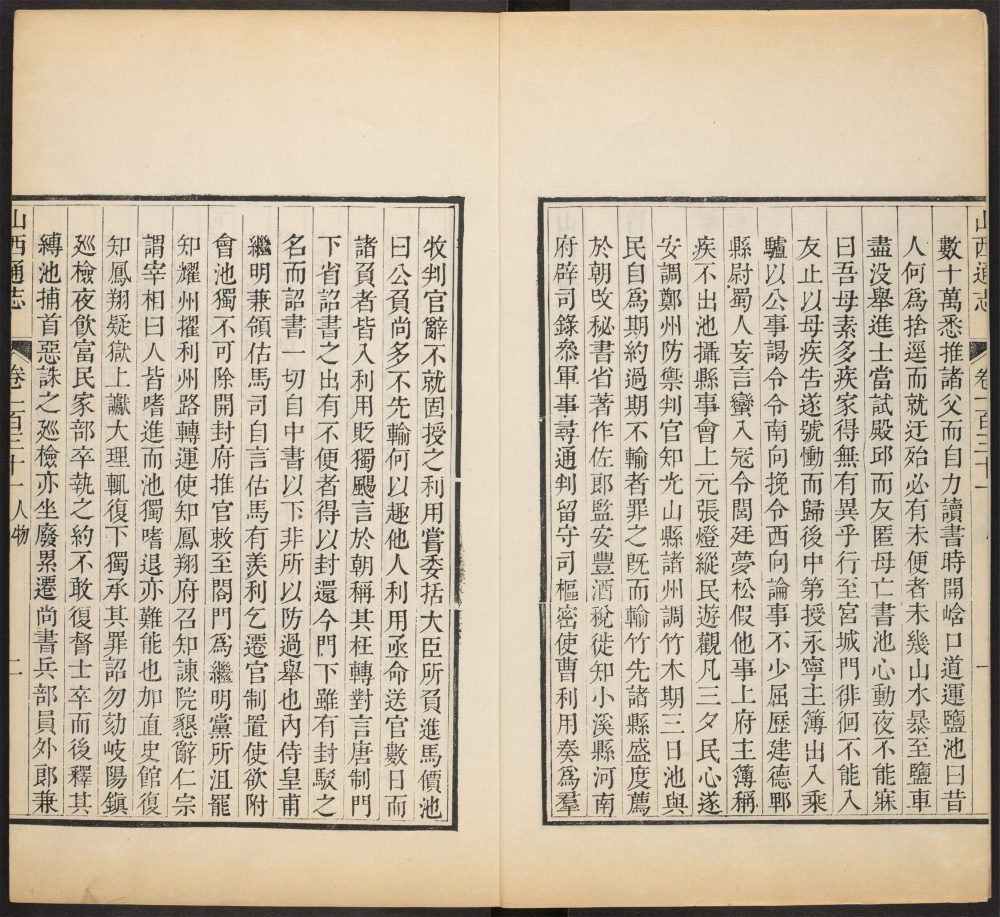 山西通志
卷一百三十一
一
數十萬悉推諸父而自力讀書時開崤口道運鹽池曰昔
人何爲捨逕而就迂殆必有未便者未幾山水暴至鹽車
盡没舉進士當試殿邱而友匿母亡書池心動夜不能寐
曰吾母素多疾家得無有異乎行至宮城門徘徊不能入
友止以母疾告遂號慟而歸後中第授永寧主簿出入乘
驢以公事謁令令南向挽令西向論事不少屈歷建德郫
縣尉蜀人妄言蠻入冦令閭廷夢松假他事上府主簿稱
疾不出池攝縣事會上元張燈縱民遊觀凡三夕民心遂
安調鄭州防禦判官知光山縣諸州調竹木期三日池與
民自爲期約過期不輸者罪之旣而輸竹先諸縣盛度薦
於朝改秘書省著作佐郎監安豐酒稅徙知小溪縣河南
府辟司錄叅軍事尋通判留守司樞密使曹利用奏爲羣
牧判官辭不就固授之利用嘗委括大臣所負進馬價池
曰公負尚多不先輸何以趣他人利用亟命送官數日而
諸負者皆入利用貶獨颺言於朝稱其枉轉對言唐制門
下省詔書之出有不便者得以封還今門下雖有封駁之
名而詔書一切自中書以下非所以防過舉也內侍皇甫
繼明兼領估馬司自言估馬有羨利乞遷官制置使欲附
會池獨不可除開封府推官敕至閤門爲繼明黨所沮罷
知耀州擢利州路轉運使知鳳翔府召知諫院懇辭仁宗
謂宰相曰人皆嗜進而池獨嗜退亦難能也加直史館復
知鳳翔疑獄上讞大理輒復下獨承其罪詔勿劾岐陽鎮
廵檢夜飮富民家部卒執之約不敢復督士卒而後釋其
縛池捕首惡誅之廵檢亦坐廢累遷尚書兵部員外郎兼
山西通志
卷一百三十一人物
二